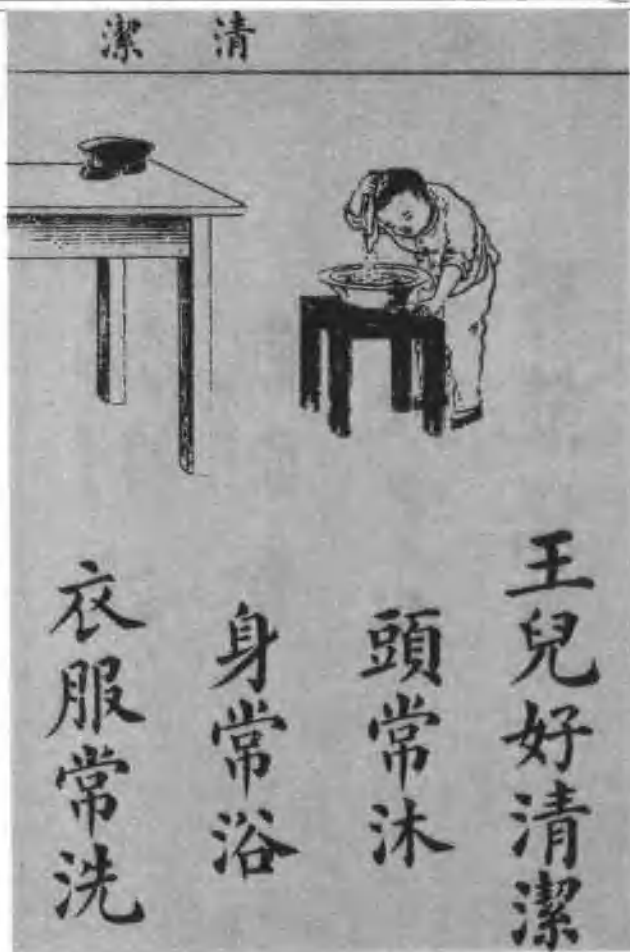 清潔
王兒好清潔
頭常沐
身常浴
衣服常洗